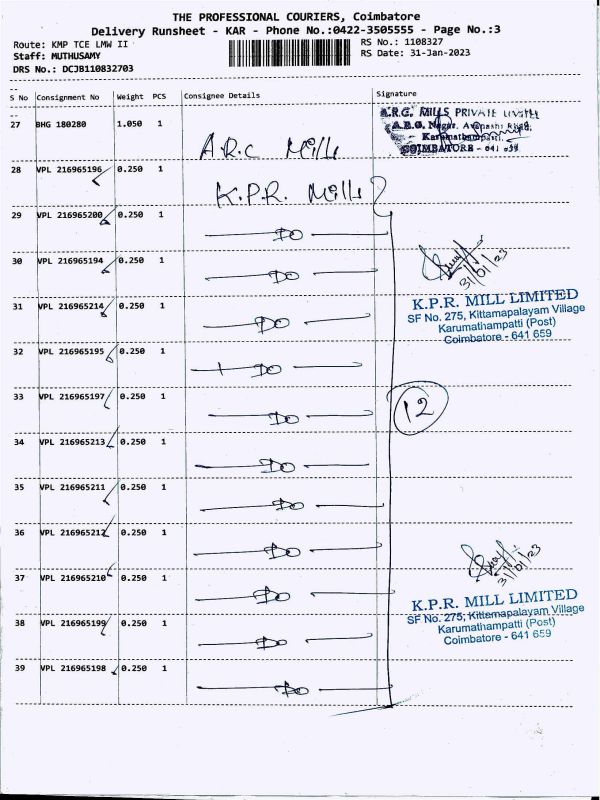 THE PROFESSIONAL COURIERS, Coimbatore
Delivery Runsheet - KAR - Phone No.:0422-3505555 - Page No.:3
Route: KMP TCE LMW II RS No.: 1108327
Staff: MUTHUSAMY RS Date: 31-Jan-2023
DRS No.: DCJB110832703
S No Consignment No Weight PCS Consignee Details Signature
27 BHG 180280 1.050 1 A.R.C Mills
A.R.C. MILLS PRIVATE LIMITED
COIMBATORE - 641
28 VPL 216965196 0.250 1 K.P.R. Mills
29 VPL 216965200 0.250 1 DO
30 VPL 216965194 0.250 1 DO
31/01/23
31 VPL 216965214 0.250 1 DO
K.P.R. MILL LIMITED
SF No. 275, Kittamapalayam Village
Karumathampatti (Post)
Coimbatore - 641 659
32 VPL 216965195 0.250 1 DO
33 VPL 216965197 0.250 1 DO
12
34 VPL 216965213 0.250 1 DO
35 VPL 216965211 0.250 1 DO
36 VPL 216965212 0.250 1 DO
31/01/23
37 VPL 216965210 0.250 1 DO
K.P.R. MILL LIMITED
SF No. 275, Kittamapalayam Village
Karumathampatti (Post)
Coimbatore - 641 659
38 VPL 216965199 0.250 1 DO
39 VPL 216965198 0.250 1 DO